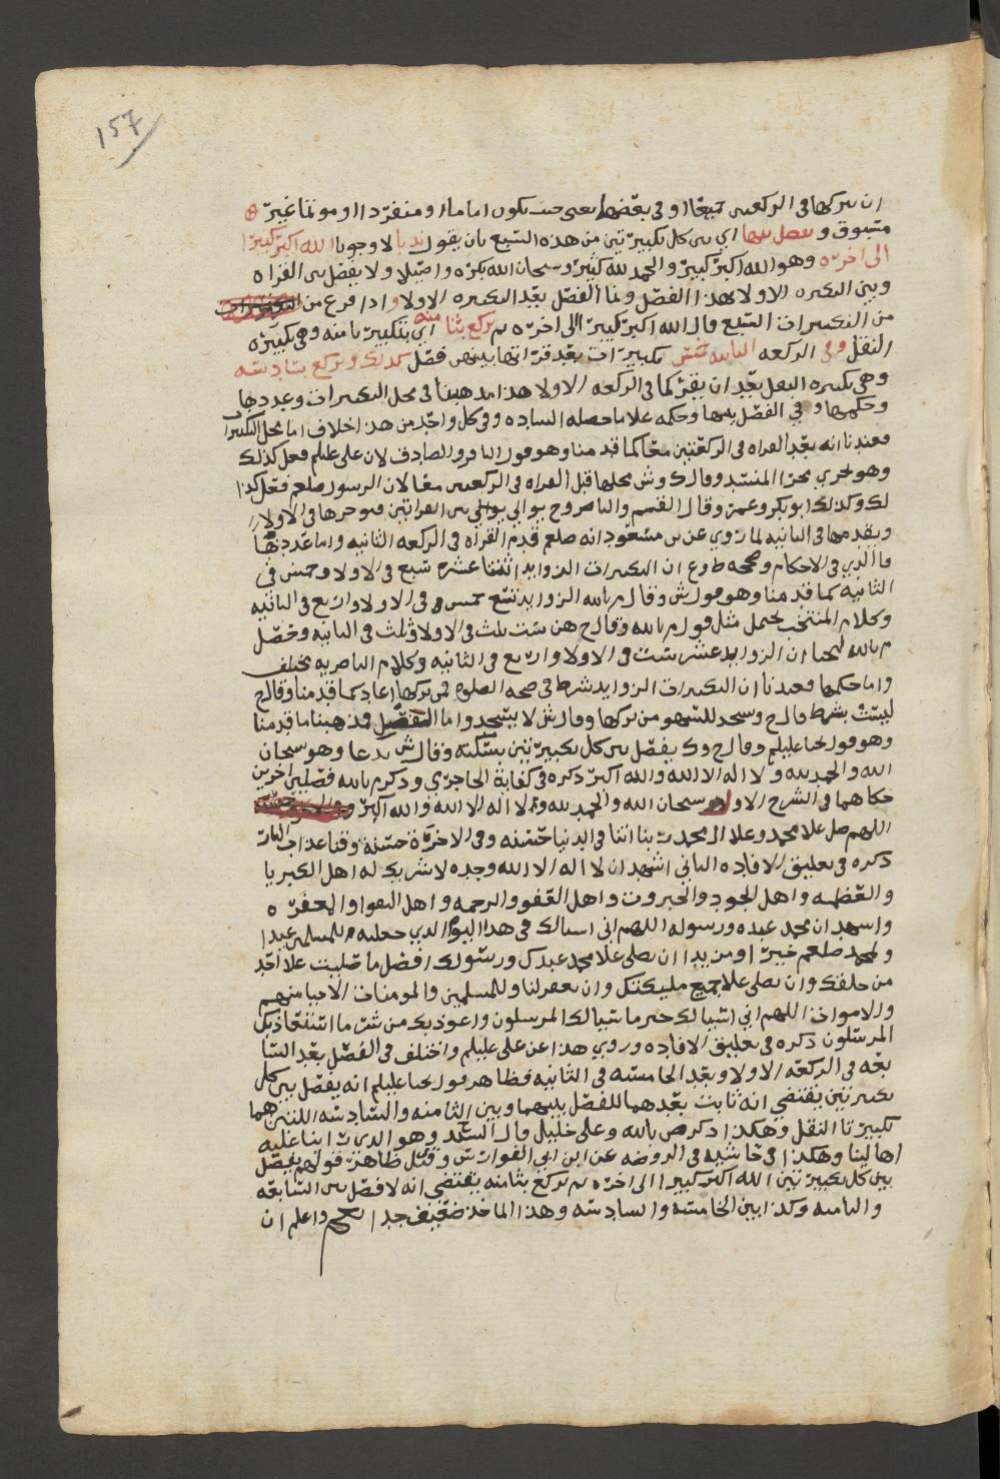 157
ان تركها في الركعتين جميعا او في بعضها يعني حيث يكون اماما او منفردا او موتما غير
مسبوق و يفصل بينها اي بين كل تكبيرتين من هذه السبع بان يقول ندبا لا وجوبا الله اكبر كبيرا
الى اخره وهو الله اكبر كبيرا والحمد لله كثيرا وسبحان الله بكره واصيلا ولا يفصل بين القراه
وبين التكبيره الاولا بهذا الفصل ونما الفصل بعد التكبيره الاولا واذا فرغ من
من التكبيرات السبع قال الله اكبر كبيرا الى اخره ثم يركع بثامنه اي بتكبيره ثامنه وهي تكبيره
النقل وفي الركعه الثانيه خمس تكبيرات بعد قراتها بينهن فصل كذلك و يركع بسادسه
وهي تكبيره النقل بعد ان يقرا كما في الركعه الاولا هذا مذهبنا في محل التكبيرات وعددها
وحكمها وفي الفصل بينها وحكمه علا ما حصله الساده وفي كل واحد من هذه اخلاف اما محل التكبيرات
فعندنا انه بعد القراه في الركعتين معا كما قدمنا وهو قول الباقر والصادق لان علي عليلم فعل كذلك
وهو يجري مجرا المسند وقال ك وش محلها قبل القراه في الركعتين معا لان الرسول صلعم فعل كذا
لك وكذلك ابو بكر وعمر وقال القسم والناصر وح يوالي بين القراتين فيوخرها في الاولا
ويقدمها في الثانيه لما روي عن بن مسعود انه صلعم قدم القراه في الركعه الثانيه واما عددها
فالذي في الاحكام وصححه ط و ع ان التكبيرات الزوايد اثنتا عشره سبع في الاولا وخمس في
الثانيه كما قدمنا وهو قول ش وقال م بالله الزوايد تسع خمس في الاولا واربع في الثانيه
وكلام المنتخب يحتمل مثل قول م بالله وقال ح هن ست ثلث في الاولا وثلث في الثانيه وحصل
م بالله ليحيا ان الزوايد عشر ست في الاولا واربع في الثانيه وكلام الناصريه مختلف
واما حكمها فعندنا ان التكبيرات الزوايد شرط في صحه الصلوه فمن تركها اعاد كما قدمنا وقال ح
ليست بشرط قال ح ويسجد للسهو من تركها وقال ش لا يسجد واما الفصل فمذهبنا ما قدمنا
وهو قول يحيا عليلم وقال ح وك يفصل بين كل تكبيرتين بسكته وقال ش بدعا وهو سبحان
الله والحمد لله ولا اله الا الله والله اكبر ذكره في كفاية الحاجري وذكر م بالله فصلين اخرين
حكاهما في الشرح الاول سبحان الله والحمد لله ولا اله الا الله والله اكبر
اللهم صل علا محمد وعلا ال محمد ربنا اتنا في الدنيا حسنه وفي الاخره حسنه وقنا عذاب النار
ذكره في تعليق الافاده الثاني اشهد ان لا اله الا الله وحده لا شريك له اهل الكبريا
والعظمه واهل الجود والجبروت واهل العفو والرحمه واهل التقوا والمغفره
واشهد ان محمد عبده ورسوله اللهم اني اسالك في هذا اليوم الذي جعلته للمسلمين عيدا
ولمحمد صلعم خيرا ومزيدا ان تصلي علا محمد عبدك ورسولك افضل ما صليت علا احد
من خلقك وان تصلي علا جميع مليكتك وان تغفر لنا وللمسلمين والمومنات الاحيا منهم
والاموات اللهم اني اسالك خير ما سالك المرسلون واعوذ بك من شر ما استعاذ بك
المرسلون ذكره في تعليق الافاده وروي هذا عن علي عليلم واختلف في الفصل بعد السا
بعه في الركعه الاولا وبعد الخامسه في الثانيه فظاهر قول يحيا عليلم انه يفصل بين كل
تكبيرتين يقتضي انه ثابت بعدهما للفصل بينهما وبين الثامنه والسادسه اللتين هما
تكبيرتا النقل وهكذا ذكر ص بالله وعلي خليل قال السيد وهو الذي راينا عليه
اهالينا وهكذا في حاشيه في الروضه عن ابن ابي الفوارس وقيل ظاهر قولهم يفصل
بين كل تكبيرتين الله اكبر كبيرا الى اخره ثم يركع بثامنه يقتضي انه لا فصل بين السابعه
والثامنه وكذا بين الخامسه والسادسه وهذا الماخذ ضعيف جدا واعلم ان